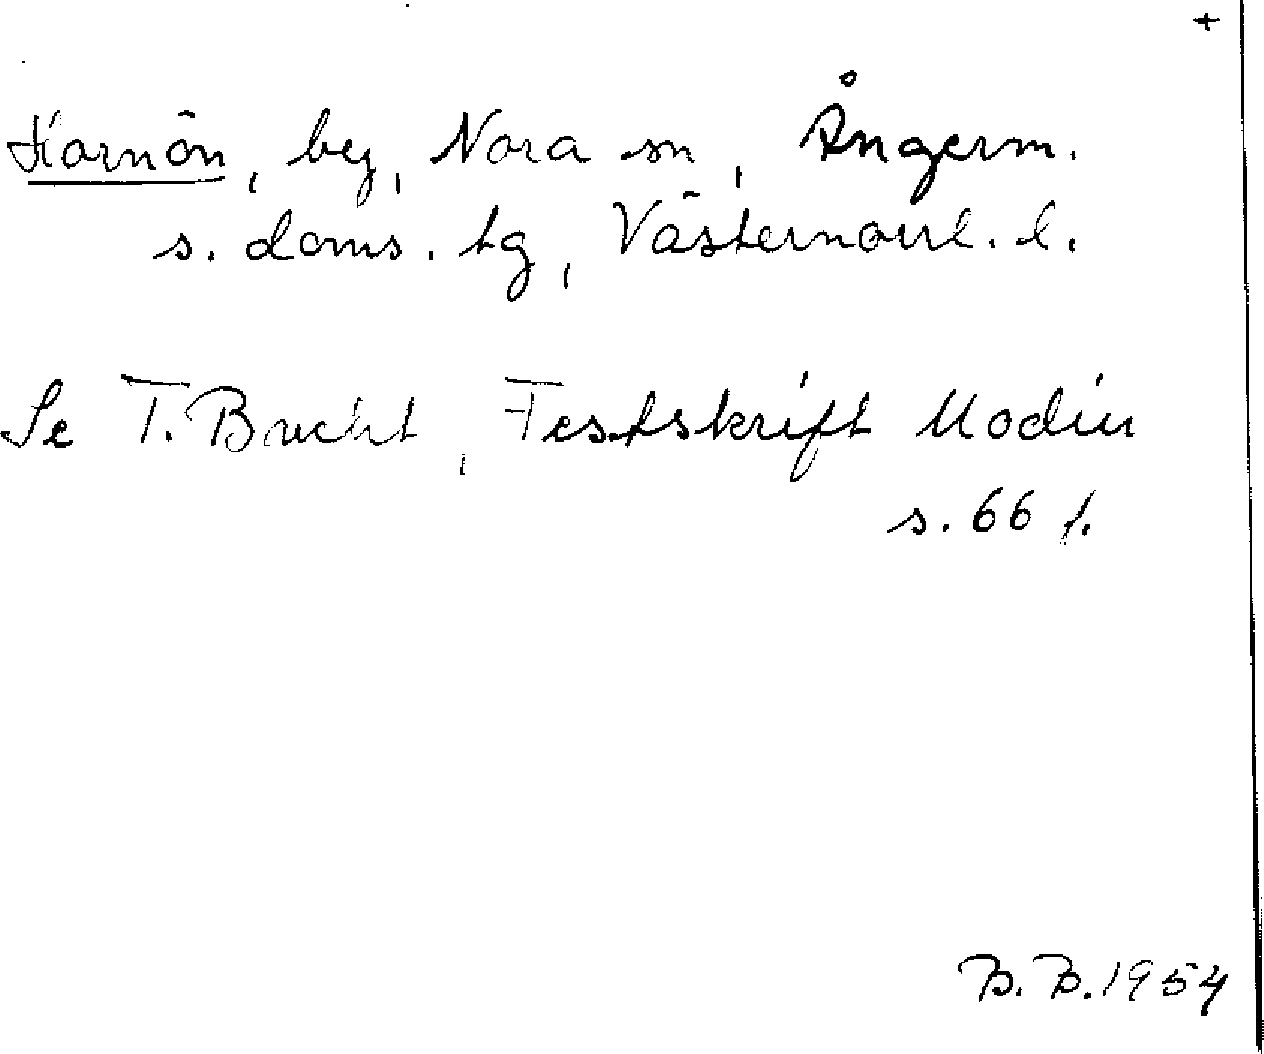 +
Kornön, by, Nora sn, Ångerm.
s. doms. tg, Västernorrl. l.
Se T. Bucht, Festskrift Modin
s. 66 f.
B. B. 1954